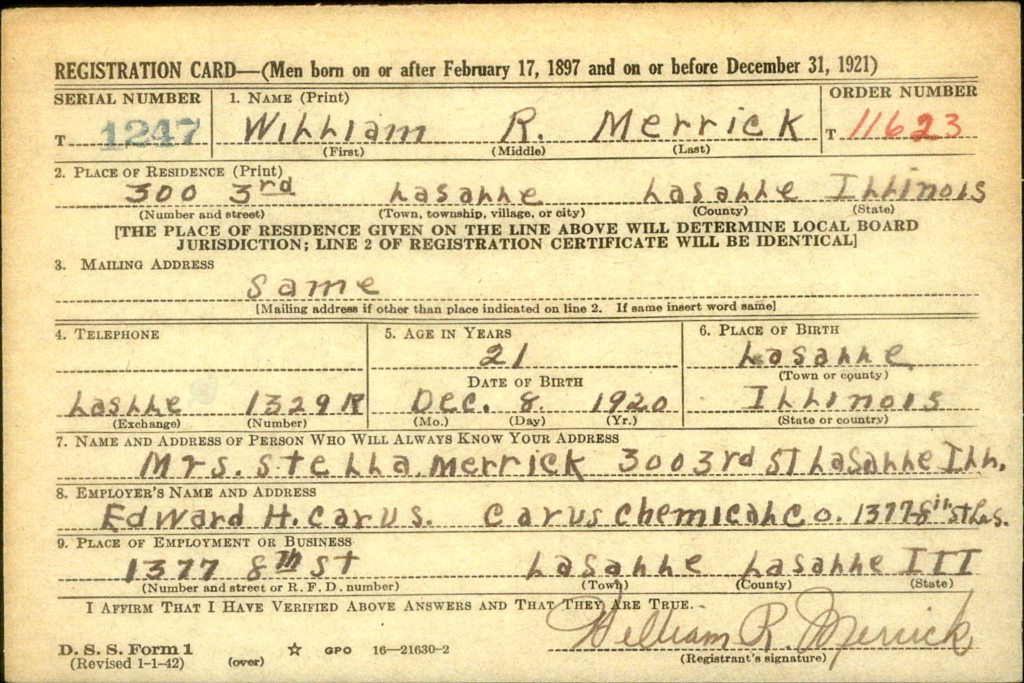 REGISTRATION CARD—(Men born on or after February 17, 1897 and on or before December 31, 1921)
SERIAL NUMBER 1. NAME (Print) ORDER NUMBER
T 1247 William R. Merrick T 11623
(First) (Middle) (Last)
2. PLACE OF RESIDENCE (Print)
300 3rd LaSalle LaSalle Illinois
(Number and street) (Town, township, village, or city) (County) (State)
[THE PLACE OF RESIDENCE GIVEN ON THE LINE ABOVE WILL DETERMINE LOCAL BOARD
JURISDICTION; LINE 2 OF REGISTRATION CERTIFICATE WILL BE IDENTICAL]
3. MAILING ADDRESS
Same
[Mailing address if other than place indicated on line 2. If same insert word same]
4. TELEPHONE 5. AGE IN YEARS 6. PLACE OF BIRTH
21 LaSalle
DATE OF BIRTH (Town or county)
Laslle 1329 R Dec. 8 1920 Illinois
(Exchange) (Number) (Mo.) (Day) (Yr.) (State or country)
7. NAME AND ADDRESS OF PERSON WHO WILL ALWAYS KNOW YOUR ADDRESS
Mrs. Stella Merrick 300 3rd St LaSalle Ill.
8. EMPLOYER'S NAME AND ADDRESS
Edward H. Carus. Carus Chemical Co. 1377-8th St Las.
9. PLACE OF EMPLOYMENT OR BUSINESS
1377 8th St LaSalle LaSalle Ill
(Number and street or R. F. D. number) (Town) (County) (State)
I AFFIRM THAT I HAVE VERIFIED ABOVE ANSWERS AND THAT THEY ARE TRUE.
William R. Merrick
D. S. S. Form 1
(Revised 1-1-42) (over) ☆ GPO 16—21630-2 (Registrant's signature)